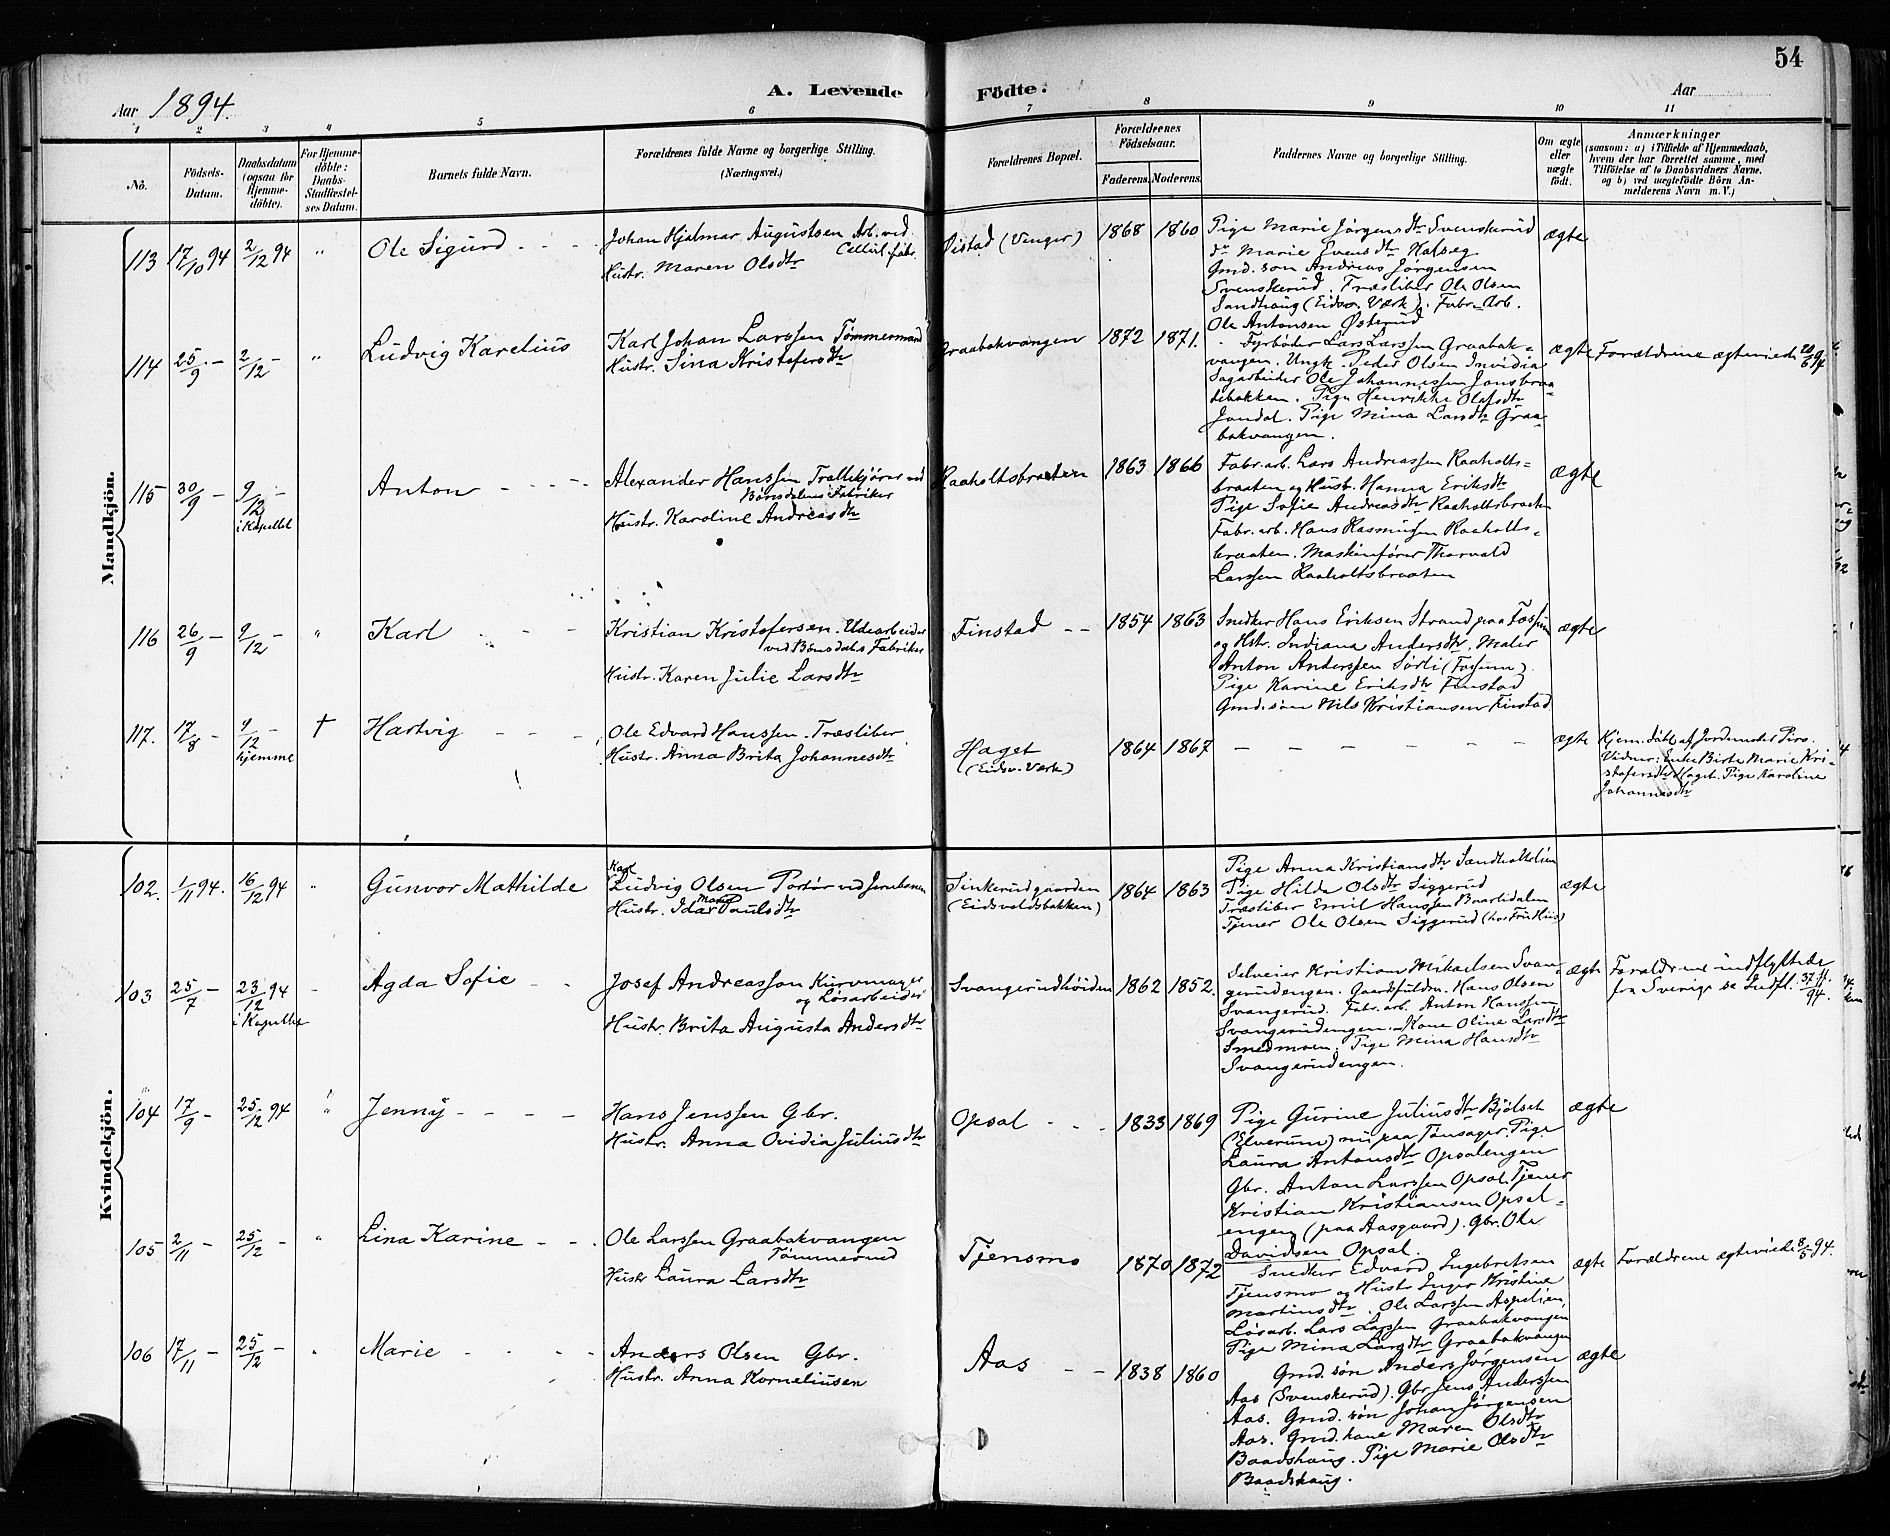 54
Aar 1894. A. Levende Födte. Aar
1 2 3 4 5 6 7 8 9 10 11
No.
Födsels-Datum.
Daabsdatum (ogsaa for Hjemme-döbte).
For Hjemme-döbte: Daabs-Stadfæstel-ses Datum.
Barnets fulde Navn.
Forældrenes fulde Navne og borgerlige Stilling. (Næringsvei.)
Forældrenes Bopæl.
Forældrenes Födselsaar.
Faderens. Moderens.
Faddernes Navne og borgerlige Stilling.
Om ægte eller uægte født.
Anmærkninger
(saasom: a) i Tilfælde af Hjemmedaab,
hvem der har forrettet samme, med
Tilföielse af to Daabsvidners Navne,
og b) ved uægtefödte Börn An-
melderens Navn m. V.)
Mandkjön.
113 17/10 94 2/12 94 " Ole Sigurd
Johan Hjalmar Augustsen Arb. ved
Cellul.fabr.
Hustr. Maren Olsdtr
(Venger) 1868 1860
Pige Marie Jørgensdtr Svenskerud
do Marie Svensdtr Habseg
Gmd. søn Andreas Jørgensen
Svenskerud. Træsliber Ole Olsen
Sandhaug (Eidsv. Værk). Fabr. Arb.
Ole Antonsen Østerud
ægte
114 25/9 - 2/12 - " Ludvig Karelius
Karl Johan Larssen Tømmermand
Hustr. Sina Kristofersdtr
Graabakvangen 1872 1871.
Fyrbøder Lars Larssen Graabak-
vangen. Ungk. Peder Olsen Invidia
Sagarbeider Ole Johannessen Jonsbraa-
tebakken. Pige Henrikke Olafsdtr
Jondal. Pige Mina Larsdtr Graa-
bakvangen.
ægte Forældrene ægteviede 20/6 94
115 30/9 - 9/12 - i Kapellet Anton
Alexander Hanssen Trallekjører ved
Bønsdalens Fabriker
Hustr. Karoline Andreasdtr
Raaholtsbraaten 1863 1866
Fabr. arb. Lars Andreassen Raaholts-
braaten og Hustr. Hanna Eriksdtr
Pige Sofie Andreasdtr Raaholtsbraaten
Fabr. arb. Hans Rasmussen Raaholts-
braaten. Maskinfører Thorvald
Larssen Raaholtsbraaten
ægte
116 26/9 - 9/12 - " Karl
Kristian Kristofersen. Udearbeider
ved Bønsdals Fabriker
Hustr. Karen Julie Larsdtr
Finstad 1854 1863
Snedker Hans Eriksen Strand paa Fossum
og Hstr. Indiana Andersdtr. Maler
Anton Anderssen Sørli (Fossum).
Pige Karine Eriksdtr Finstad
Gmd. søn Nils Kristiansen Finstad
ægte
117. 17/8 - 9/12 hjemme † Hartvig
Ole Edvard Hanssen. Træsliber
Hustr. Anna Brita Johannesdtr
Haget
(Eidsv. Værk)
1864 1867 - - - - - - -
ægte Hjem. døbt af Jordemoder Piro.
Vidner: Enke Birte Marie Kri-
stofersdtr Haget. Pige Karoline
Johannesdtr
Kvindekjön.
102. 1/11 94. 16/12 94 " Gunvor Mathilde
Karl
Ludvig Olsen Portør ved Jernbanen
Hustr. Ida Marie Paulsdtr
Sinkerudgaarden
(Eidsvoldsbakken)
1864 1863
Pige Anna Kristiansdtr
Pige Hilda Olsdtr Siggerud
Træsliber Emil Hanssen Baarlidalen
Tjener Ole Olsen Siggerud (hos Fru Hiis)
ægte
103 25/7 - 23/12 94 i Kapellet Agda Sofie
Josef Andreasson Kurvmager
og Løsarbeider
Hustr. Brita Augusta Andersdtr
Svangerudhøiden 1862 1852.
Selveier Kristian Mikaelsen Svan-
gerudengen. Gaardfuldm. Hans Olsen
Svangerud. Fabr. arb. Anton Hanssen
Svangerudengen. Kone Oline Larsdtr
Smedmoen. Pige Mina Hansdtr
Svangerudengen.
ægte Forældrene indflyttede
fra Sverige se Indfl.
104 17/9 - 25/12 94 " Jenny
Hans Jenssen Gbr.
Hustr. Anna Ovidia Juliusdtr
Opsal 1833 1869
Pige Gurine Juliusdtr Bjølset
(Elverum) nu paa Tønsager. Pige
Laura Antonsdtr Opsalengen
Gbr. Anton Larssen Opsal. Tjener
Kristian Kristiansen Opsal-
engen (paa Aasgaard). Gbr. Ole
Davidsen Opsal.
ægte
105 2/11 - 25/12 - " Lina Karine
Ole Larssen Graabakvangen
Tømmermd
Hustr Laura Larsdtr
Tjensmo 1870 1872
Snedker Edvard Ingebretsen
Tjensmo og Hustr Inger Kristine
Martinsdtr. Ole Larssen Aspelien,
Løsarb. Lars Larssen Graabakvangen
Pige Mina Larsdtr Graabakvangen
ægte Forældrene ægteviede 8/5 94.
106 17/11 - 25/12 - " Marie
Anders Olsen Gbr.
Hustr. Anna Korneliusen
Aas 1838 1860
Gmd. søn Anders Jørgensen
Aas (Svenskerud). Gbr Jens Anderssen
Aas. Gmd. søn Johan Jørgensen
Aas. Gmd. kone Maren Olsdtr
Baadshaug. Pige Marie Olsdtr
Baadshaug.
ægte